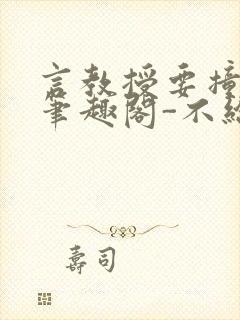 言教授要撞
笔趣阁-不
寿司